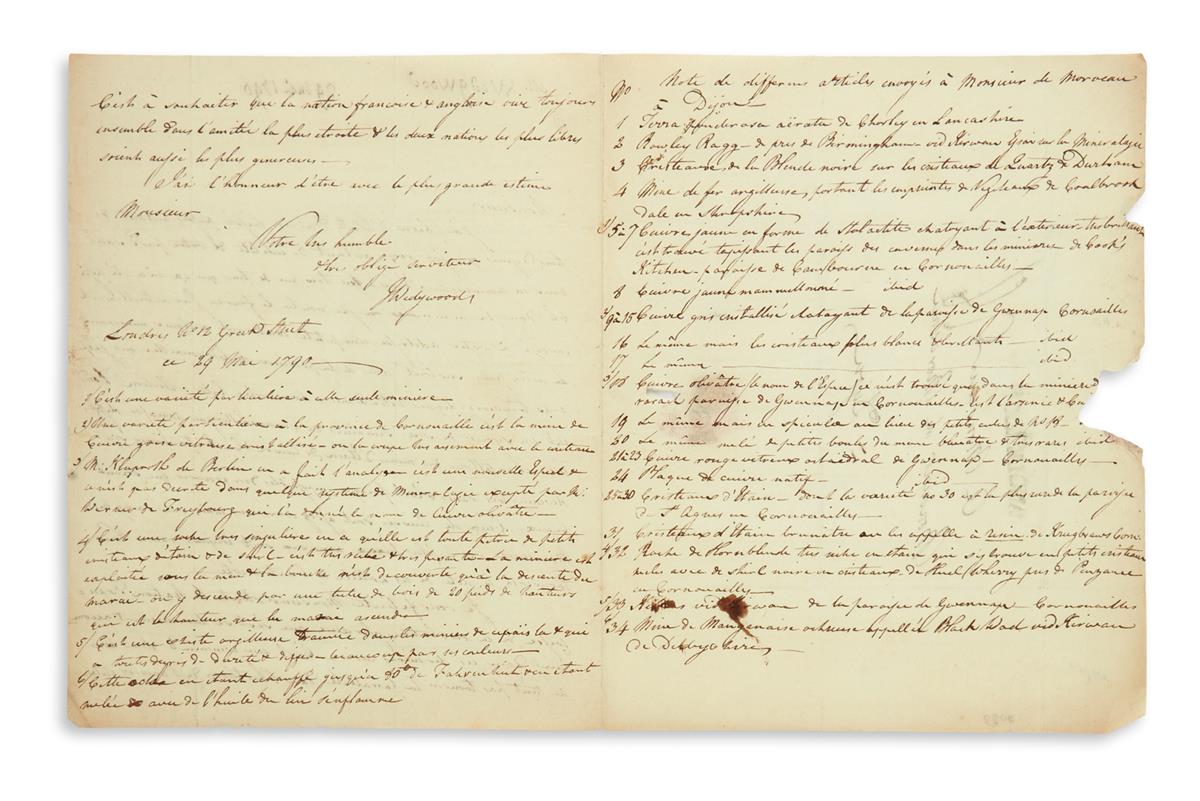 C'est à souhaiter que la nation françoise & angloise vive toujours
ensemble dans l'amitée la plus etroite & les deux nations les plus libres
soient aussi les plus genereuses —
J'ais l'honneur d'être avec la plus grande estime
Monsieur
Votre tres humble
& tres obligé serviteur
J Wedgwood
Londres No 12 Greek Street
ce 29 Mai 1790
C'est une variété particuliere à cette seule miniere
Une varieté particuliere à la province de Cornouaille c'est la mine de
Cuivre grise vitreuse cristallisée — on la coupe tres aisement avec le couteau
3 Mr. Klaproth de Berlin en a fait l'analyse c'est une nouvelle Espece &
n'est pas decrite dans quelque systeme de Mineralogie excepté par Mr.
Werner de Freybourg qui l'a donné le nom de Cuivre olivâtre —
4 C'est une roche tres singuliere en ce qu'elle est toute petrie de petits
cristaux d'etain & de shirl c'est tres riche & tres pesante — La miniere est
exploitée sous la mer & la bouche n'est decouverte qu'à la descente du
marai on y descende par une tube de bois de 20 pieds de hauteurs
qui est la hauteur que la marée ascende
5/ C'est une schiste argilleuse trouvée dans les minieres de ce païs la & qui
a toutes degrés de dureté & differe beaucoup par ses couleurs —
6/ Cette ochre en étant échauffé jusqu'a 90° de Fahrenheit & en étant
mélée avec de l'huile de lin s'enflamme
No. Note de differens articles envoyés à Monsieur de Morveau
à Dijon —
1 Terra ponderosa aërata de Chorley en Lancashire
2 Rowley Ragg — de pres de Birmingham — vid Kirwan Essai sur la Mineralogie
3 Cristeaux de la Blende noire sur les cristeaux de Quartz de Durham
4 Mine de fer argilleuse, portant les empreintes de Vegiteaux de Coalbrook
dale en Shropshire
1/ 5 à 7 Cuivre jaune en forme de Stalactite chatoyant à l'exterieur
est trouvé tapissant les parois des cavernes dans les minieres de Cook's
Kitchen — paroisse de Cambourne en Cornouailles —
8 Cuivre jaune mammelloné — ibid
2/ 9 à 15 Cuivre gris cristallisé chatoyant de la paroisse de Gwennap Cornouailles
16 Le même mais les cristeaux plus blancs & brillants — ibid
17 Le même — ibid
3/ 18 Cuivre olivâtre (le nom de l'Espece) ce n'est trouvé que dans la miniere d
paroisse de Gwennap en Cornouailles — c'est l'arsenic & Cu
19 Le même mais en spiculæ au lieu des petits cubes de No 18 —
20 Le même melé de petites boules du même bluâtre & tres rares ibid
21 à 23 Cuivre rouge vitreux octaëdral de Gwennap — Cornouailles —
24 Plaque de cuivre natif — ibid
25 à 30 Cristeaux d'Etain — dont la varieté No 30 est la plus rare de la paroisse
de St Agnes en Cornouailles —
31 Cristeaux d'Etain brunâtre on les appelle à resin de Corn.
4/ 32 Roche de Hornblende tres riche en etain qui s'y trouve en petits cristeaux
melés avec de shirl noire en cristeaux — de Huel Wherry pres de Penzance
en Cornouailles —
5/ 33 Killas vid Kirwan de la paroisse de Gwennap Cornouailles
6/ 34 Mine de Manganaise ochreuse appellée Black Wad vid Kirwan
de Derbyshire —